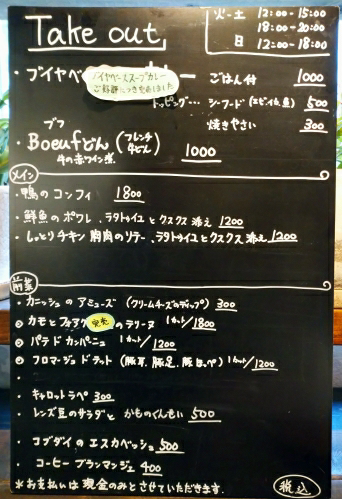 Take out
火-土 12:00-15:00
18:00-20:00
日 12:00-18:00
・ブイヤベ カレー ごはん付 1000
ブイヤベーススープカレー
ご好評につき
トッピング… シーフード 500
焼きやさい 300
ブフ
・Boeufどん (フレンチ牛どん) 1000
牛の赤ワイン煮
メイン
・鴨のコンフィ 1800
・鮮魚のポワレ、ラタトゥイユとクスクス添え 1200
・しっとりチキン胸肉のソテー、ラタトゥイユとクスクス添え 1200
前菜
・カニッシュのアミューズ (クリームチーズのディップ) 300
カモとフォアグ 完売 のテリーヌ 1カット/1800
パテドカンパーニュ 1カット/1200
フロマージュドテット (豚耳、豚足、豚ほっぺ) 1カット/1200
・キャロットラペ 300
・レンズ豆のサラダと かものくんせい 500
・コブダイのエスカベッシュ 500
・コーヒーブランマンジェ 400
＊お支払いは現金のみとさせていただきます。
税込